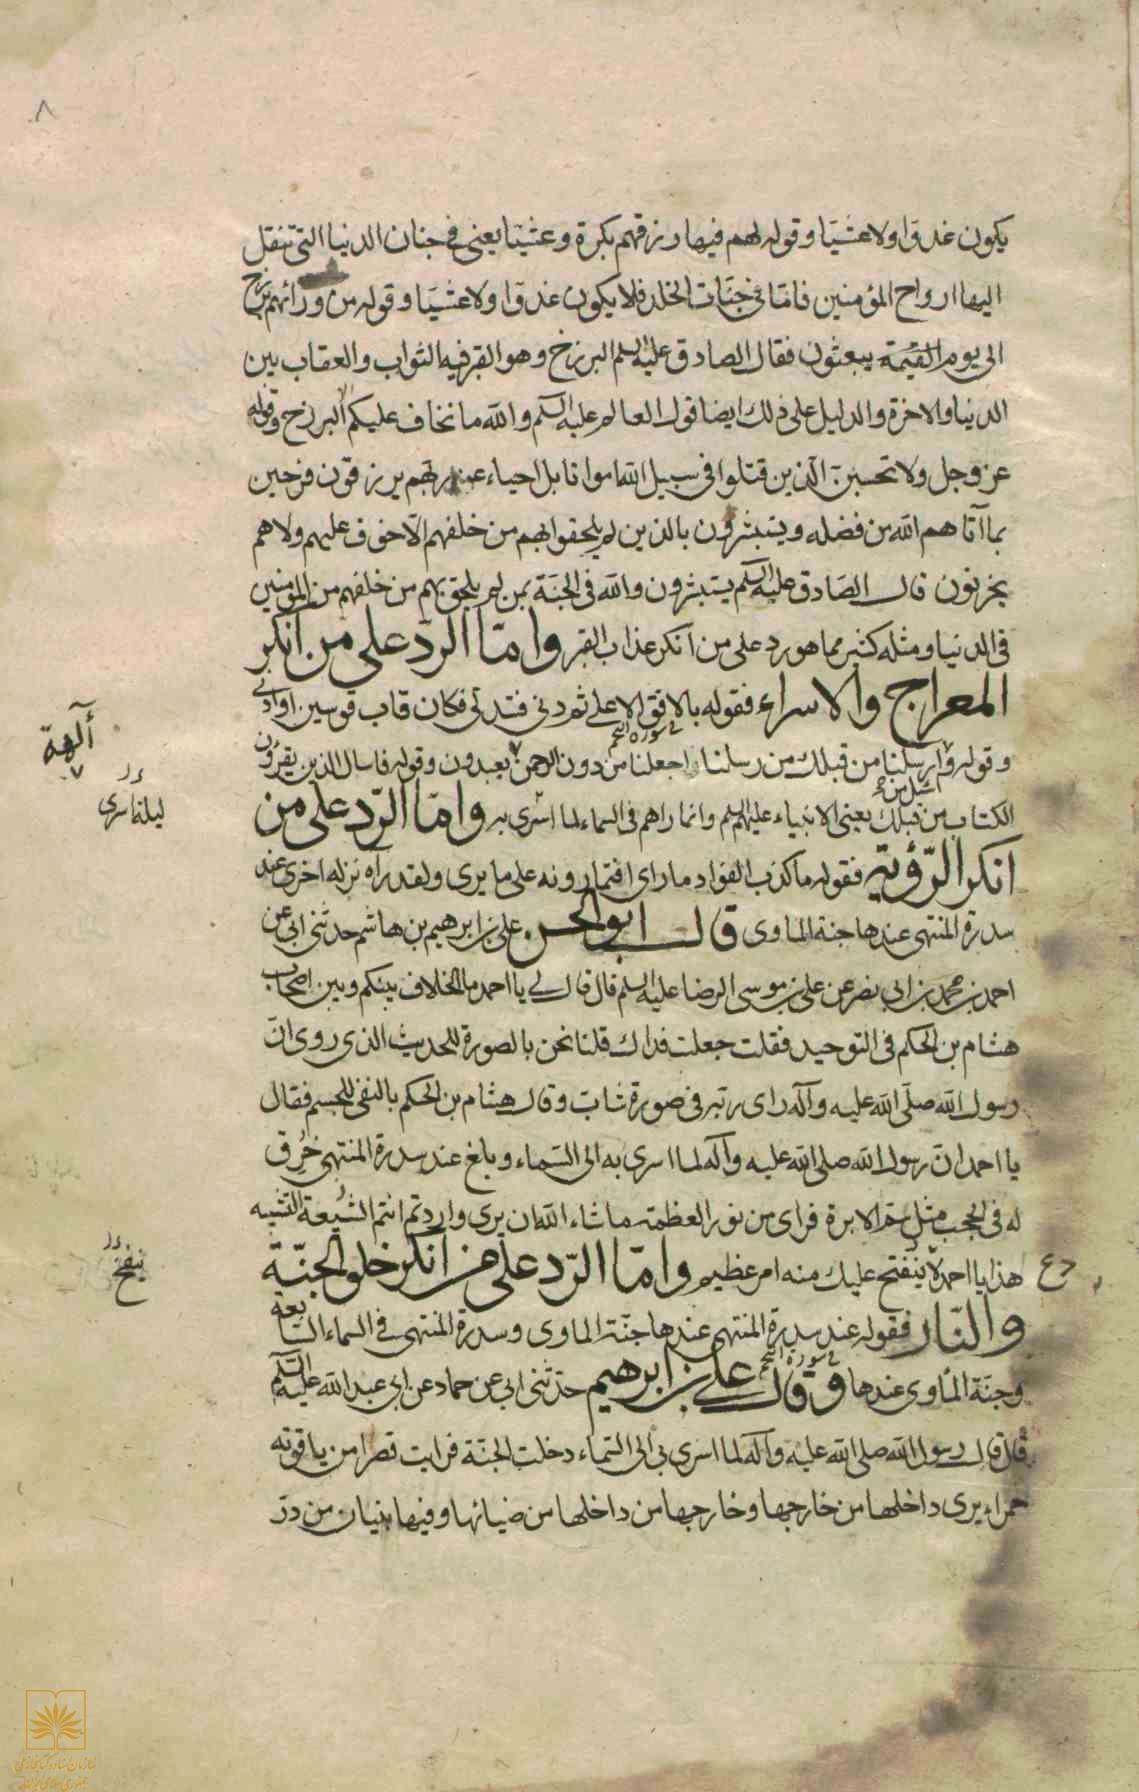 ٨
يكون غدوّا ولا عشيّا وقوله لهم فيها رزقهم بكرة وعشيّا يعنى فى جنان الدنيا التى تنقل
اليها ارواح المؤمنين فامّا فى جنّات الخلد فلا يكون غدوّا ولا عشيّا وقوله من ورائهم برزخ
الى يوم القيمة يبعثون فقال الصادق عليه السلم البرزخ وهو القبر فيه الثواب والعقاب بين
الدنيا والاخرة والدليل على ذلك ايضا قول العالم عليه السلم والله ما نخاف عليكم الا البرزخ وقوله
عز وجل ولا تحسبنّ الّذين قتلوا فى سبيل الله امواتا بل احياء عند ربهم يرزقون فرحين
بما آتاهم الله من فضله ويستبشرون بالذين لم يلحقوا بهم من خلفهم الّا خوف عليهم ولا هم
يحزنون قال الصّادق عليه السلم يستبشرون والله فى الجنّة بمن لم يلحق بهم من خلفهم من المؤمنين
فى الدنيا ومثله كثير مما هو رد على من انكر عذاب القبر وامّا الردّ على من انكر
المعراج والاسراء فقوله بالافق الاعلى ثم دنى فتدلى فكان قاب قوسين او ادنى
فى سورة النجم
وقوله وارسلنا من قبلك من رسلنا اجعلنا من دون الرحمن يعبدون وقوله فاسال الذين يقرؤن
آلهة
اسئل من
الكتاب من قبلك يعنى الانبياء عليهم السلم وانما راهم فى السماء لما اسرى به وامّا الردّ على من
ليلة اسرى
انكر الرّؤية فقوله ما كذب الفؤاد ما راى افتمارونه على ما يرى ولقد راه نزله اخرى عند
سدرة المنتهى عندها جنة الماوى قال ابو الحسن على بن ابرهيم بن هاشم حدثنى ابى عن
احمد بن محمد بن ابى نصر عن على بن موسى الرضا عليه السلم قال قال لى يا احمد ما الخلاف بينكم وبين اصحاب
هشام بن الحكم فى التوحيد فقلت جعلت فداك قلنا نحن بالصورة للحديث الذى روى انّ
رسول الله صلّى الله عليه وآله راى ربّه فى صورة شابّ وقال هشام بن الحكم بالنفى للجسم فقال
يا احمد انّ رسول الله صلى الله عليه وآله لما اسرى به الى السّماء وبلغ عند سدرة المنتهى خُرِق
له فى الحجب مثل سمّ الابرة فراى من نور العظمة ما شاء الله ان يرى واردتم انتم التشبيه
هذا يا احمد لا ينفتح عليك منه امر عظيم وامّا الرّد على من انكر خلق الجنّة
ينفتح
والنّار فقوله عند سدرة المنتهى عندها جنّة الماوى وسدرة المنتهى فى السماء السّابعة
فى سورة النجم
وجنّة المأوى عندها وقال على بن ابرهيم حدّثنى ابى عن حماد عن ابى عبد الله عليه السّلم
قال قال رسول الله صلى الله عليه وآله لما اسرى بى الى السّماء دخلت الجنّة فرايت قصرا من ياقوته
حمراء يرى داخلها من خارجها وخارجها من داخلها من ضيائها وفيها بنيان من درّ